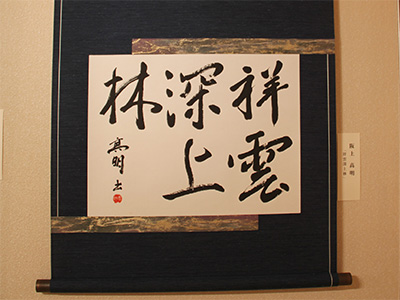 祥雲
深上
林
高明
阪上 高明